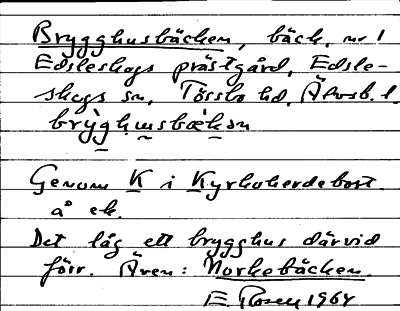 Brygghusbäcken, bäck, nr 1
Edsleskogs prästgård, Edsle-
skogs sn, Tössbo hd, Älvsb. l.
brỳghu̠sbæ̠kən
Genom K i Kyrkoherdebost.
å ek.
Det låg ett brygghus därvid
förr. Även: Norkebäcken.
E. Rosell 1964